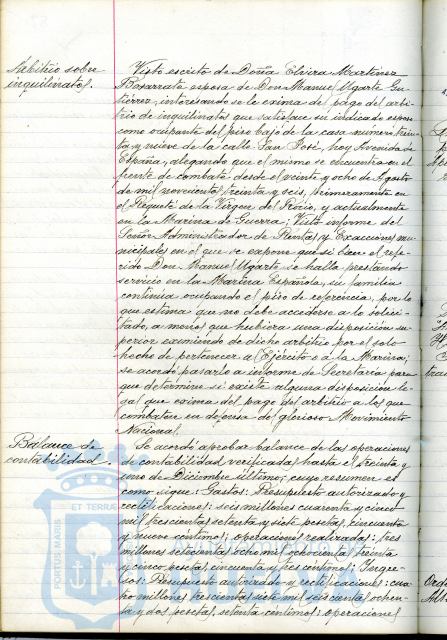 Arbitrio sobre
inquilinatos.
Visto escrito de Doña Elvira Martínez
esposa de Don Manuel Ugarte Gu-
tiérrez, interesando se le exima del pago del arbi-
trio de inquilinatos que satisface su indicado esposo
como ocupante del piso bajo de la casa numero trein-
ta y nueve de la calle San José, hoy Avenida de
España, alegando que el mismo se encuentra en el
frente de combate desde el veinte y ocho de Agosto
de mil novecientos treinta y seis, primeramente en
el Requeté de la Virgen del Rocío, y actualmente
en la Marina de Guerra; Visto informe del
Señor Administrador de Rentas y Exacciones mu-
nicipales en el que se expone que si bien el refe-
rido Don Manuel Ugarte se halla prestando
servicio en la Marina Española, su familia
continua ocupando el piso de referencia, por lo
que estima que no debe accederse a lo solici-
tado, a menos que hubiera una disposición su-
perior eximiendo de dicho arbitrio por el solo
hecho de pertenecer al Ejército o á la Marina;
se acordó pasarlo a informe de Secretaría para
que determine si existe alguna disposición le-
gal que exima del pago del arbitrio a los que
combaten en defensa del glorioso Movimiento
Nacional.
Balance de
contabilidad.
Se acordó aprobar balance de las operaciones
de contabilidad verificadas hasta el treinta y
uno de Diciembre último, cuyo resumen es
como sigue: Gastos: Presupuesto autorizado y
rectificaciones: seis millones cuarenta y cinco
mil trescientas setenta y siete pesetas, cincuenta
y nueve centimos; operaciones realizadas: tres
millones setecientas ocho mil ochocientas treinta
y cinco pesetas, cincuenta y tres centimos; Ingre-
sos: Presupuesto autorizado y rectificaciones: cua-
tro millones trescientas siete mil seiscientas ochen-
ta y dos pesetas, setenta centimos; operaciones
ET TERRA
PORTUS MARIS